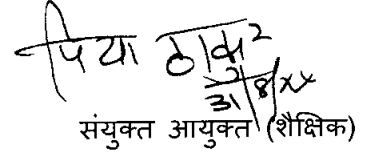 पिया ठाकुर
31/8/xx
संयुक्त आयुक्त (शैक्षिक)